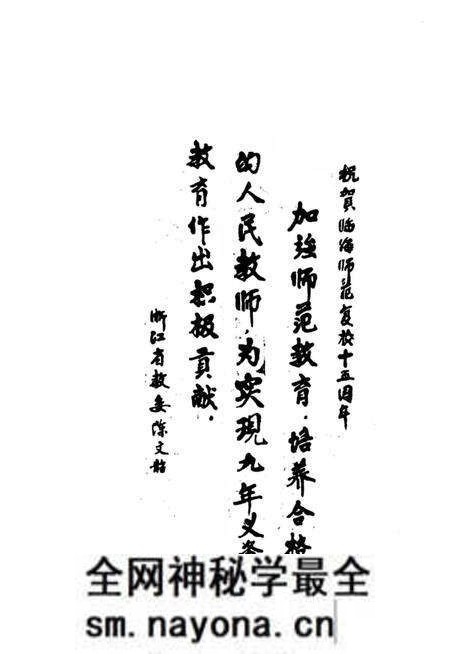 祝贺临海师范复校十五周年
加强师范教育.培养合格
的人民教师,为实现九年义务
教育作出积极贡献.
浙江省教委陈文韶
全网神秘学最全
sm.nayona.cn